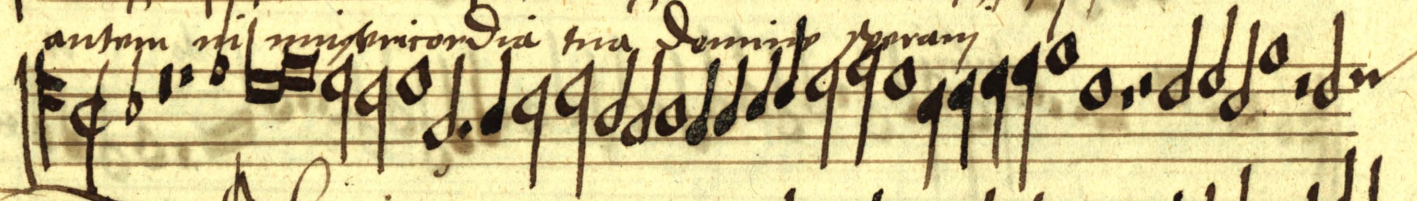 antem in misericordia tua Domine speram